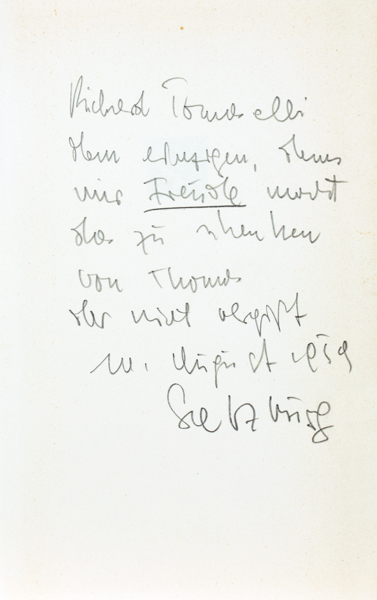 Richard Tomaselli
dem einzigen, dems
mir Freude macht
das zu schenken
von Thomas
der nicht vergißt
10. August 1959
Salzburg